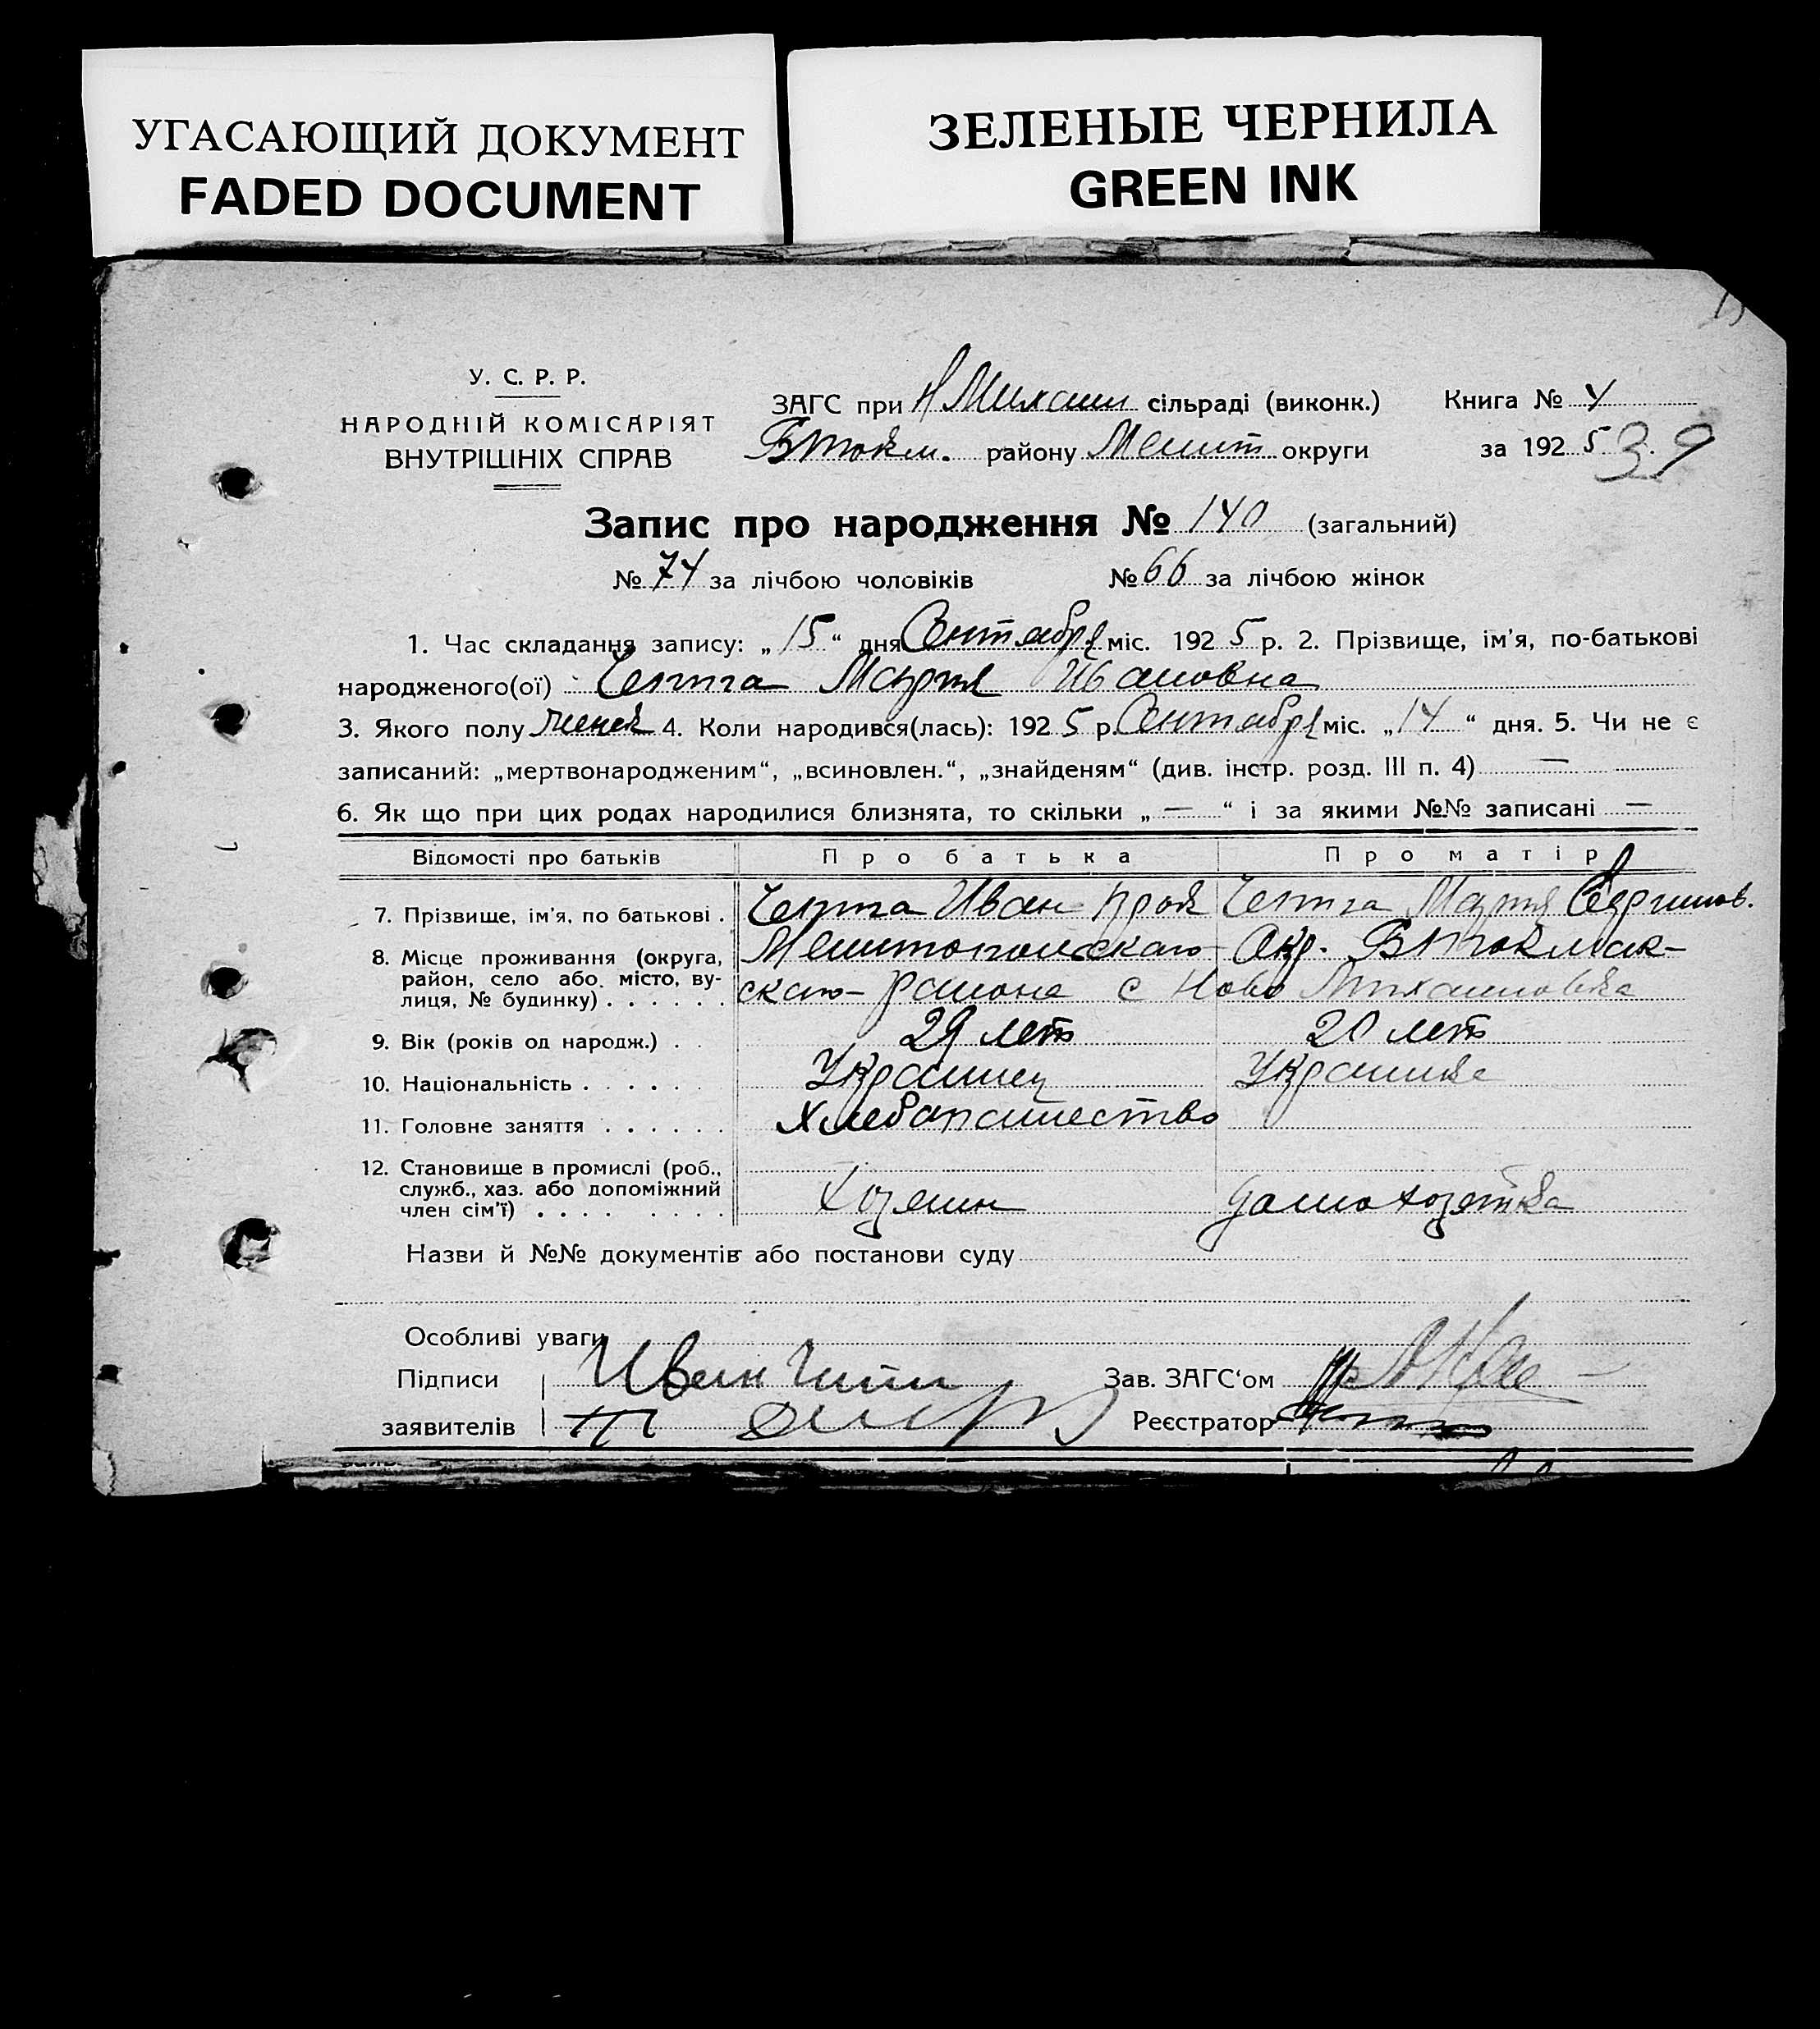 УГАСАЮЩИЙ ДОКУМЕНТ
FADED DOCUMENT
ЗЕЛЕНЫЕ ЧЕРНИЛА
GREEN INK
У. С. Р. Р.
НАРОДНІЙ КОМІСАРІЯТ
ВНУТРІШНІХ СПРАВ
ЗАГС при Н Михайл сільраді (виконк.) Книга № 4
БТокм. району Мелит округи за 192 5 39
Запис про народження № 140 (загальний)
№ 74 за лічбою чоловіків № 66 за лічбою жінок
1. Час складання запису: „ 15 “ дня Сентября міс. 192 5 р. 2. Прізвище, ім’я, по-батькові
народженого(ої) Мария Ивановна
3. Якого полу женск 4. Коли народився(лась): 192 5 р. Сентября міс. „ 14 “ дня. 5. Чи не є
записаний: „мертвонародженим“, „всиновлен.“, „знайденям“ (див. інстр. розд. III п. 4) —
6. Як що при цих родах народилися близнята, то скільки „ — “ і за якими №№ записані —
Відомості про батьків Про батька Про матір
7. Прізвище, ім’я, по батькові . Иван Прок Мария
8. Місце проживання (округа, район, село або місто, вулиця, № будинку) . . . . . . Мелитопольскаго Окр. БТокмак-
скаго района с Ново Михайловка
9. Вік (років од народж.) . . 29 лет 20 лет
10. Національність . . . . . . Украинец Украинка
11. Головне заняття . . . . . . Хлебапашество
12. Становище в промислі (роб.,
служб., хаз. або допоміжний
член сім’ї) . . . . . . . . Хозяин домохозяйка
Назви й №№ документів або постанови суду
Особливі уваги
Підписи Иван Зав. ЗАГС‘ом
заявителів Реєстратор